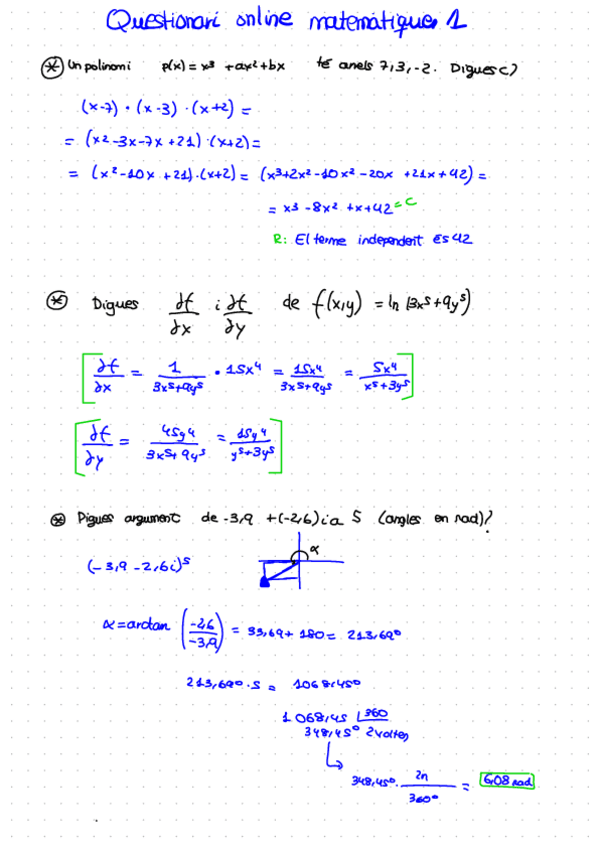 Questionari online matemàtiques 1
* Un polinomi p(x) = x³ + ax² + bx té arrels 7, 3, -2. Digues c)
(x-7) · (x-3) · (x+2) =
= (x² - 3x - 7x + 21) · (x+2) =
= (x² - 10x + 21) · (x+2) = (x³ + 2x² - 10x² - 20x + 21x + 42) =
= x³ - 8x² + x + 42 = C
R: El terme independent és 42
* Digues ∂f/∂x i ∂f/∂y de f(x,y) = ln (3x⁵ + 9y⁵)
[∂f/∂x = 1/(3x⁵+9y⁵) · 15x⁴ = 15x⁴/(3x⁵+9y⁵) = 5x⁴/(x⁵+3y⁵)]
[∂f/∂y = 45y⁴/(3x⁵+9y⁵) = 15y⁴/(y⁵+3y⁵)]
* Digues argument de -3,9 + (-2,6)i a 5 (angles en rad)?
(-3,9 - 2,6i)⁵
α
α = arctan (-2,6/-3,9) = 33,69 + 180 = 213,69º
213,69º · 5 = 1068,45º
1068,45 |360
348,45º 2 voltes
348,45º · 2π/360º = 6,08 rad